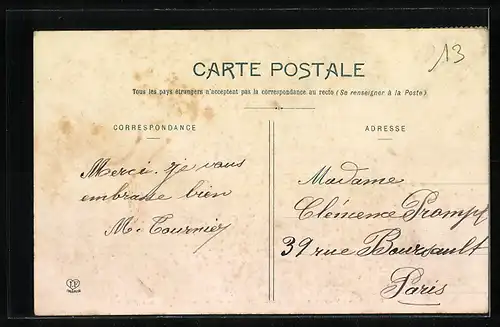 13
CARTE POSTALE
Tous les pays étrangers n'acceptent pas la correspondance au recto (Se renseigner à la Poste)
CORRESPONDANCE
ADRESSE
Merci. je vous
embrasse bien
M. Tournier
Madame
Clémence Prompt
39 rue Boursault
Paris